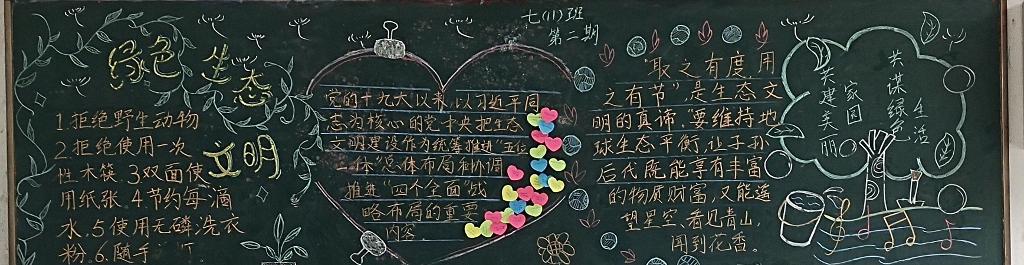 七(11)班
第二期
绿色生态
文明
1.拒绝野生动物
2.拒绝使用一次
性木筷.3双面使
用纸张.4节约每滴
水.5使用无磷洗衣
粉.6.随手
党的十九大以来,以习近平同
志为核心的党中央把生态
文明建设作为统筹推进"五位
一体"总体布局和协调
推进"四个全面"战
略布局的重要
内容.
"取之有度,用
之有节"是生态文
明的真谛.要维持地
球生态平衡,让子孙
后代既能享有丰富
的物质财富,又能遥
望星空、看见青山,
闻到花香。
共谋绿色
生活
共建美丽
家园